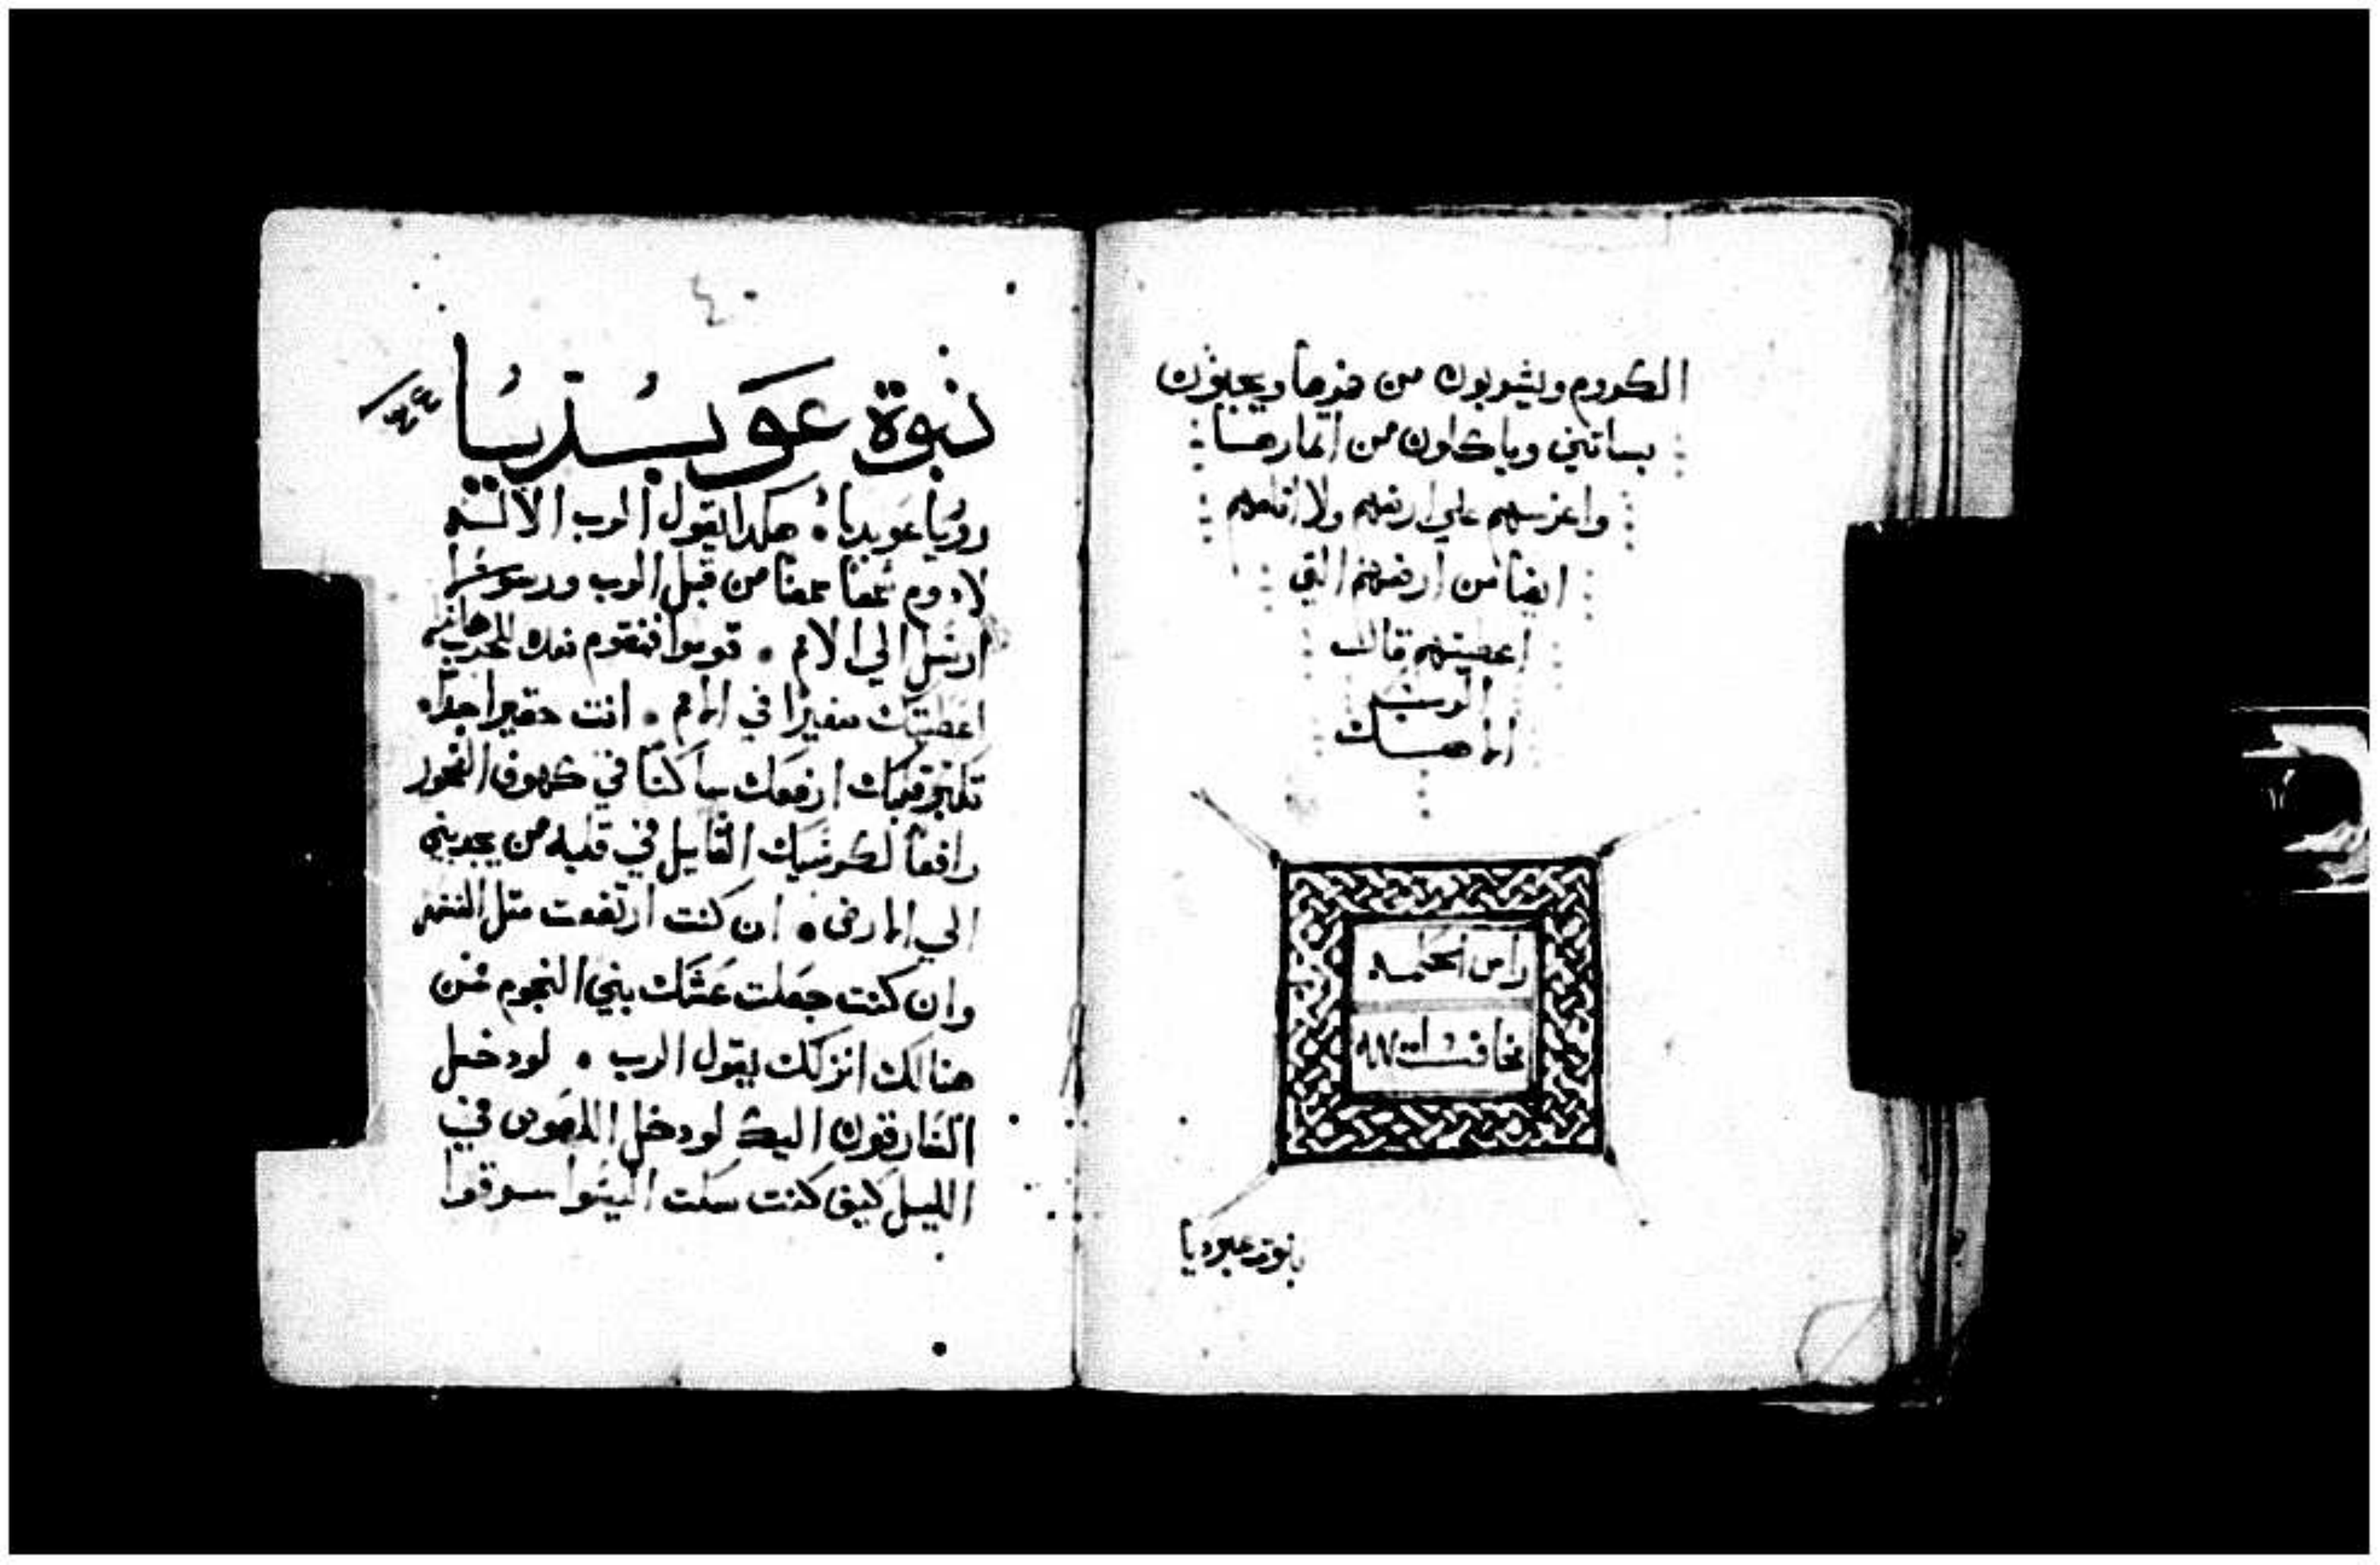 الكروم ويشربون من خمرها ويجبون
بساتين وياكلون من اتمارها
واغرسهم علي ارضهم ولا اقلعهم
ايضا من ارضهم التي
اعطيتهم قال
الرب
الاهك
بنوة عبوديا
٤٠
نبوة عوبديا
رويا عوبديا هكدا يقول الرب الاله
لادوم سمعا سمعنا من قبل الرب ورسولا
ارسل الي الامم قوموا فنقوم للحرب هانم
اعطيتك صغيرا في الامم انت حقير جدا
تكبر قلبك ارفعك ساكنا في كهوف الصخور
رافعا لكرسيك القايل في قلبه من يحدرني
الي الارض ان كنت ارتفعت متل النسر
وان كنت جعلت عشك بين النجوم فمن
هنالك انزلك يقول الرب لو دخل
السارقون اليك لو دخل اللصوص في
الليل كيف كنت سكت اليسوا سرقوا